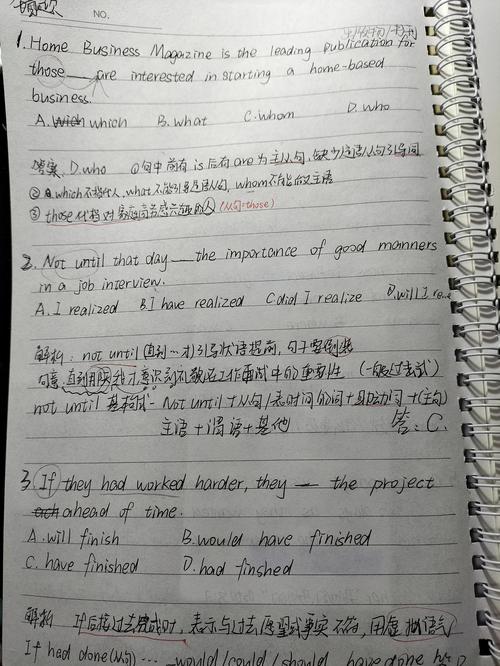 NO.
1. Home Business Magazine is the leading publication for
those ___ are interested in starting a home-based
business.
A. which B. what C. whom D. who
答案. D. who ①句中前有 is 后有 are 为主从句, 缺少定语从句引导词
② A. which不指代人, what不能引导定语从句, whom不能做主语
③ those 代替对家庭商务感兴趣的人 (从句=those)
2. Not until that day ___ the importance of good manners
in a job interview.
A. I realized B. I have realized C did I realize D. will I
解析: not until (直到…才) 引导状语提前, 句子要倒装
句意: 直到那天我才意识到礼貌在工作面试中的重要性 (一般过去式)
not until 基本式- Not until + 从句/表时间的词 + 助动词 + (主句)
主语 + 谓语 + 其他 答: C.
3. If they had worked harder, they — the project
ahead of time.
A. will finish B. would have finished
C. have finished D. had finshed
解析 If后接过去完成时, 表示与过去愿望或事实不符, 用虚拟语气
If had done (从句) … would/could/should have done